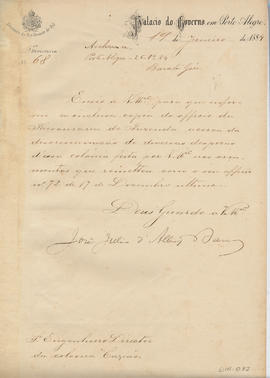 Palacio do Governo em Porto Alegre,
19 de Janeiro de 1884
Archive-se
Porto Alegre 26.1.84
N. 68
Envio a V.Mcê para que infor-
me a inclusa copia do officio da
Thesouraria de Fazenda acerca da
discriminação de diversas despezas
d'essa colonia feita por V.Mcê nos orça-
mentos que remetteu com o seu officio
nº 72 de 17 de Dezembro ultimo.
Deus Guarde a V.Mcê
José Julio d'Albuqe Barros
Sr. Engenheiro Director
da colonia Caxias